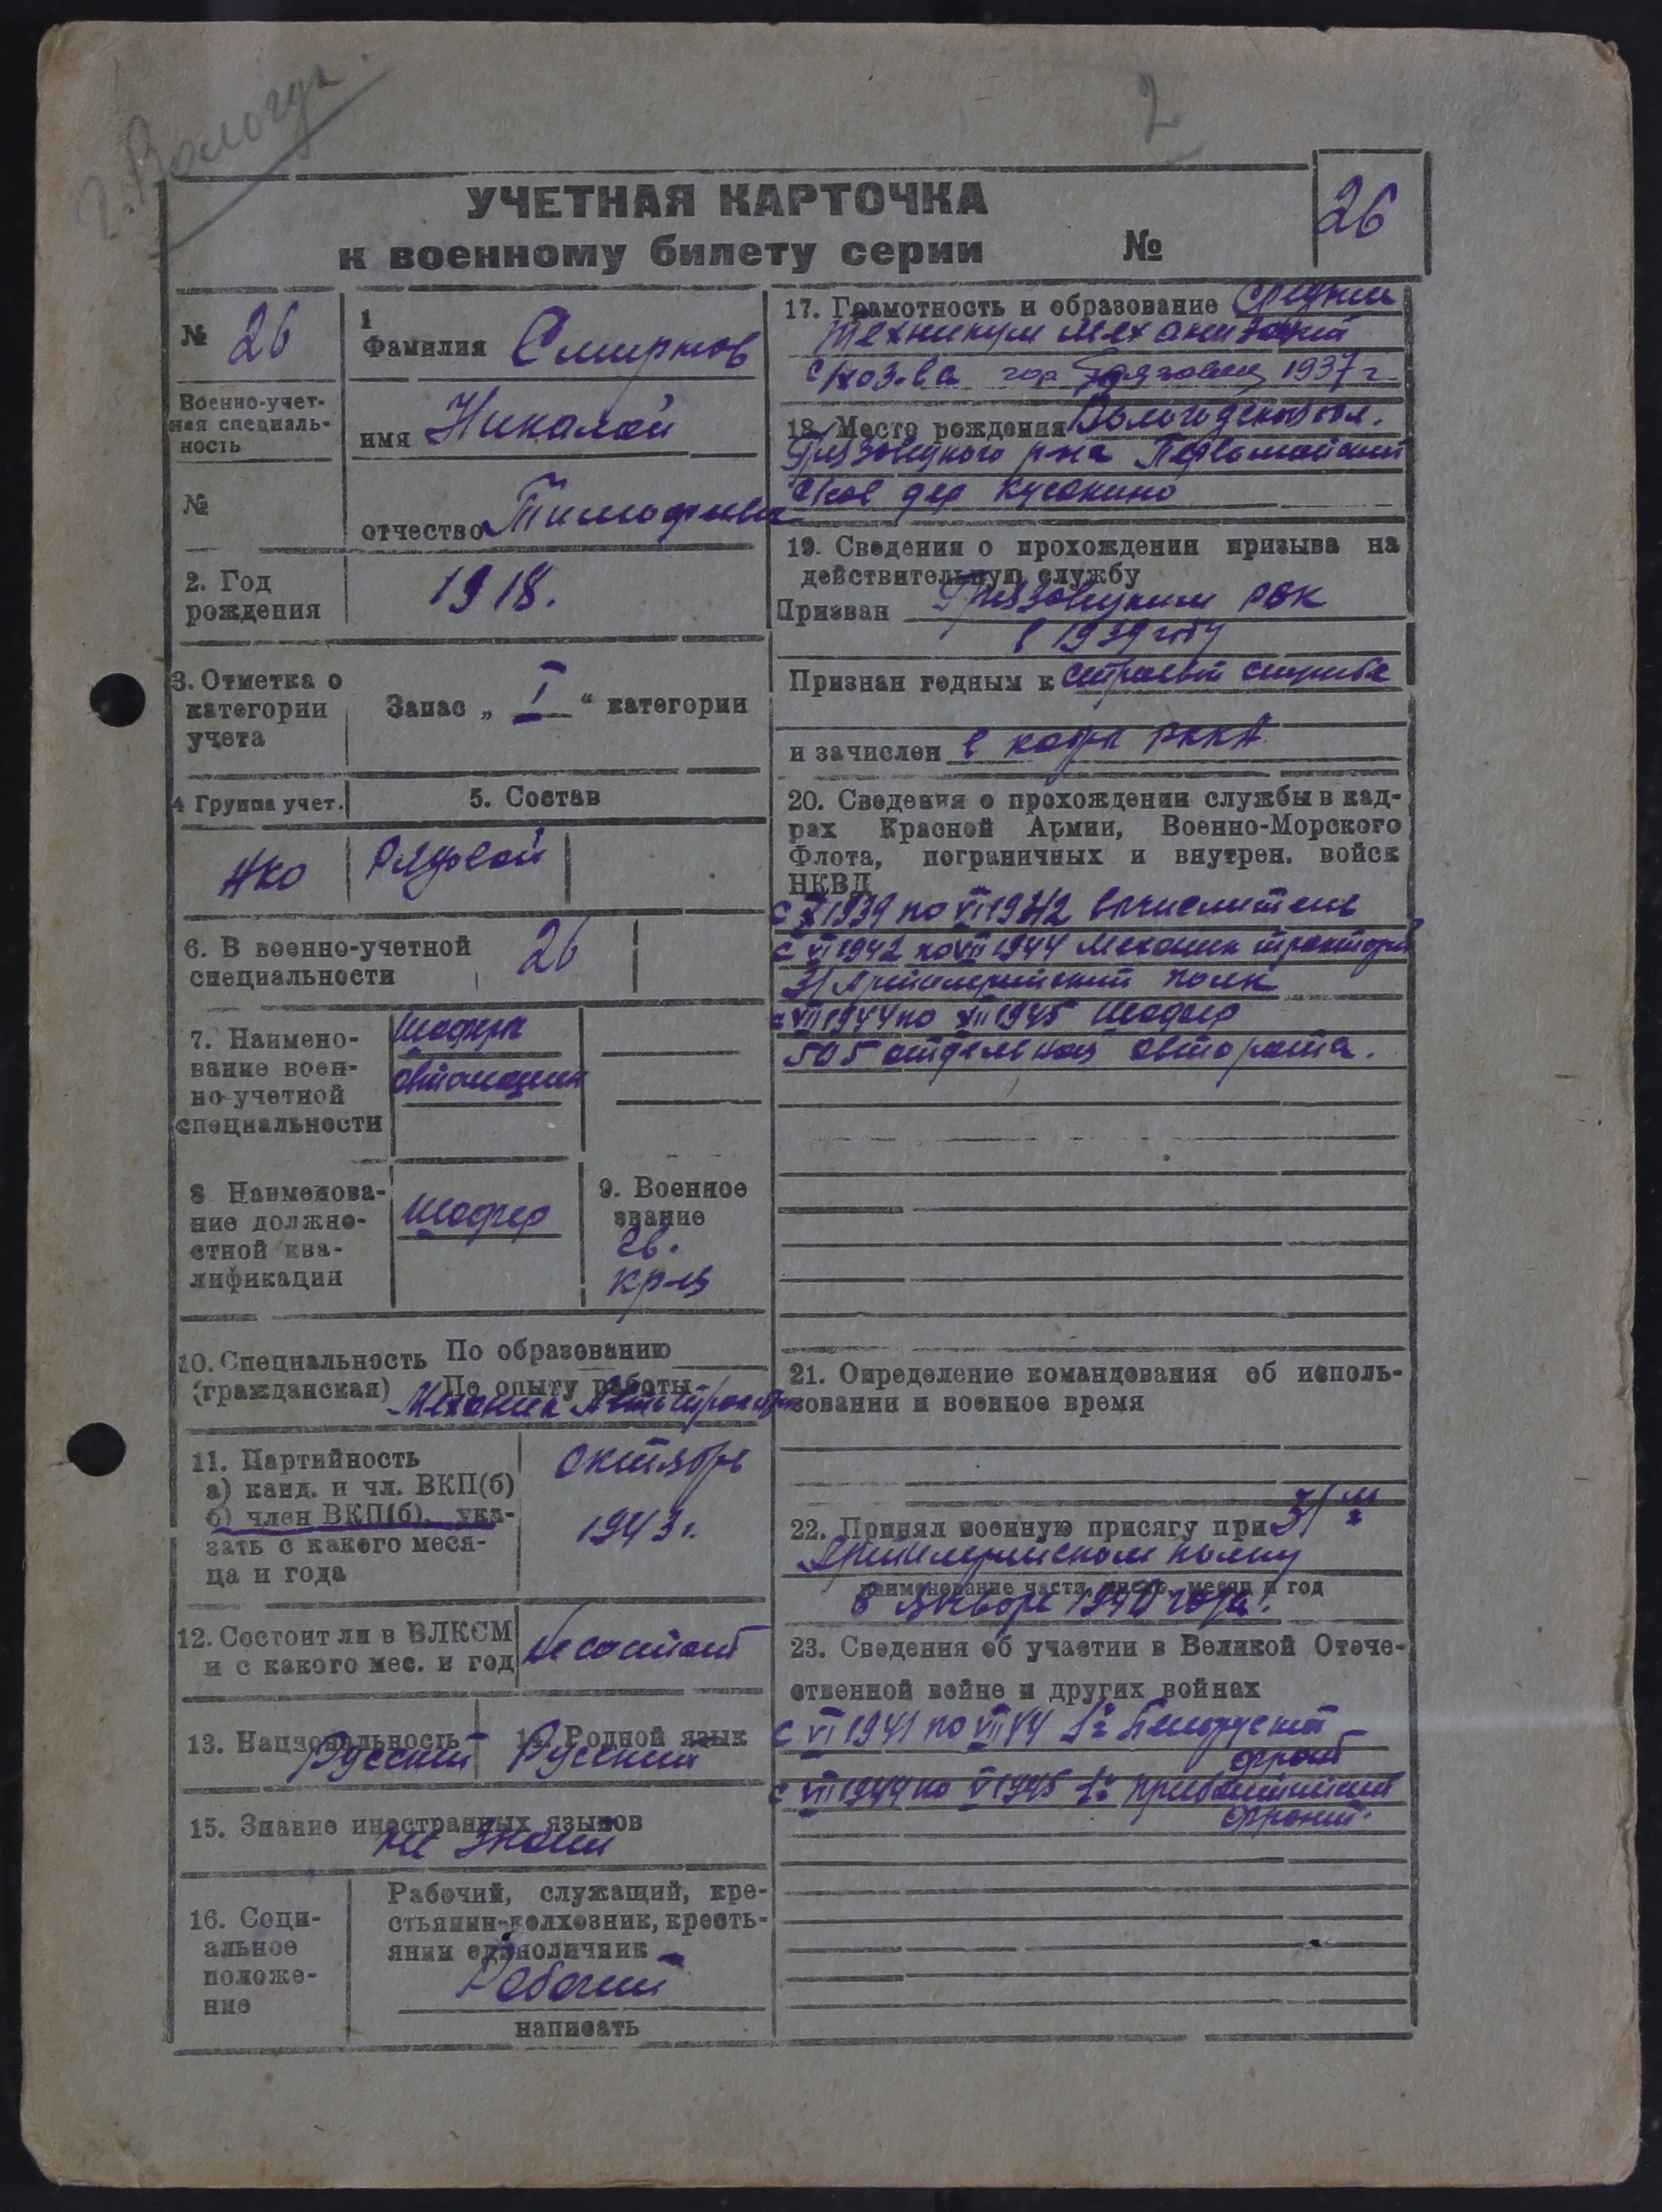 г. Вологда.
2
УЧЕТНАЯ КАРТОЧКА
к военному билету серии №
26
№ 26
Военно-учет-
ная специаль-
ность
№
1
Фамилия Смирнов
имя Николай
отчество Тимофеевич
2. Год
рождения
1918.
3. Отметка о
категории
учета
Запас „ I “ категории
4 Группа учет.
5. Состав
НКО
Рядовой
6. В военно-учетной
специальности
26
7. Наимено-
вание воен-
но-учетной
специальности
Шофера
автомашин
8 Наименова-
ние должно-
стной ква-
лификации
Шофер
9. Военное
звание
гв.
кр-ец
10. Специальность По образованию
(гражданская) По опыту работы
Механик Автотрактор
11. Партийность
а) канд. и чл. ВКП(б)
б) член ВКП(б), ука-
зать с какого меся-
ца и года
октябрь
1943 г.
12. Состоит ли в ВЛКСМ
и с какого мес. и год
Не состоит
13. Национальность
Русский
14. Родной язык
Русский
15. Знание иностранных языков
не знает
16. Соци-
альное
положе-
ние
Рабочий, служащий, кре-
стьянин-колхозник, кресть-
янин единоличник
Рабочий
написать
17. Грамотность и образование Средний
техникум механизации
с/хоз-ва гор Грязовец 1937 г
18. Место рождения Вологодской обл.
Грязовецкого р-на Первомайский
с/сов дер Кусакино
19. Сведения о прохождении призыва на
действительную службу
Призван Грязовецким РВК
в 1939 году
Признан годным к строевой службе
и зачислен в кадры РККА
20. Сведения о прохождении службы в кад-
рах Красной Армии, Военно-Морского
Флота, пограничных и внутрен. войск
НКВД
с X 1939 по VI 1942 вычислитель
с VI 1942 по VII 1944 Механик трактора
31 Артиллерийский полк
с VII 1944 по XII 1945 Шофер
505 отдельная авторота.
21. Определение командования об исполь-
зовании и военное время
22. Принял военную присягу при 31 м
Артиллерийском полку
наименование части, число, месяц и год
в январе 1940 года.
23. Сведения об участии в Великой Отече-
ственной войне и других войнах
с VI 1941 по VII 44 1й Белоруский
фронт
с VII 1944 по V 1945 1й Прибалтийский
фронт.